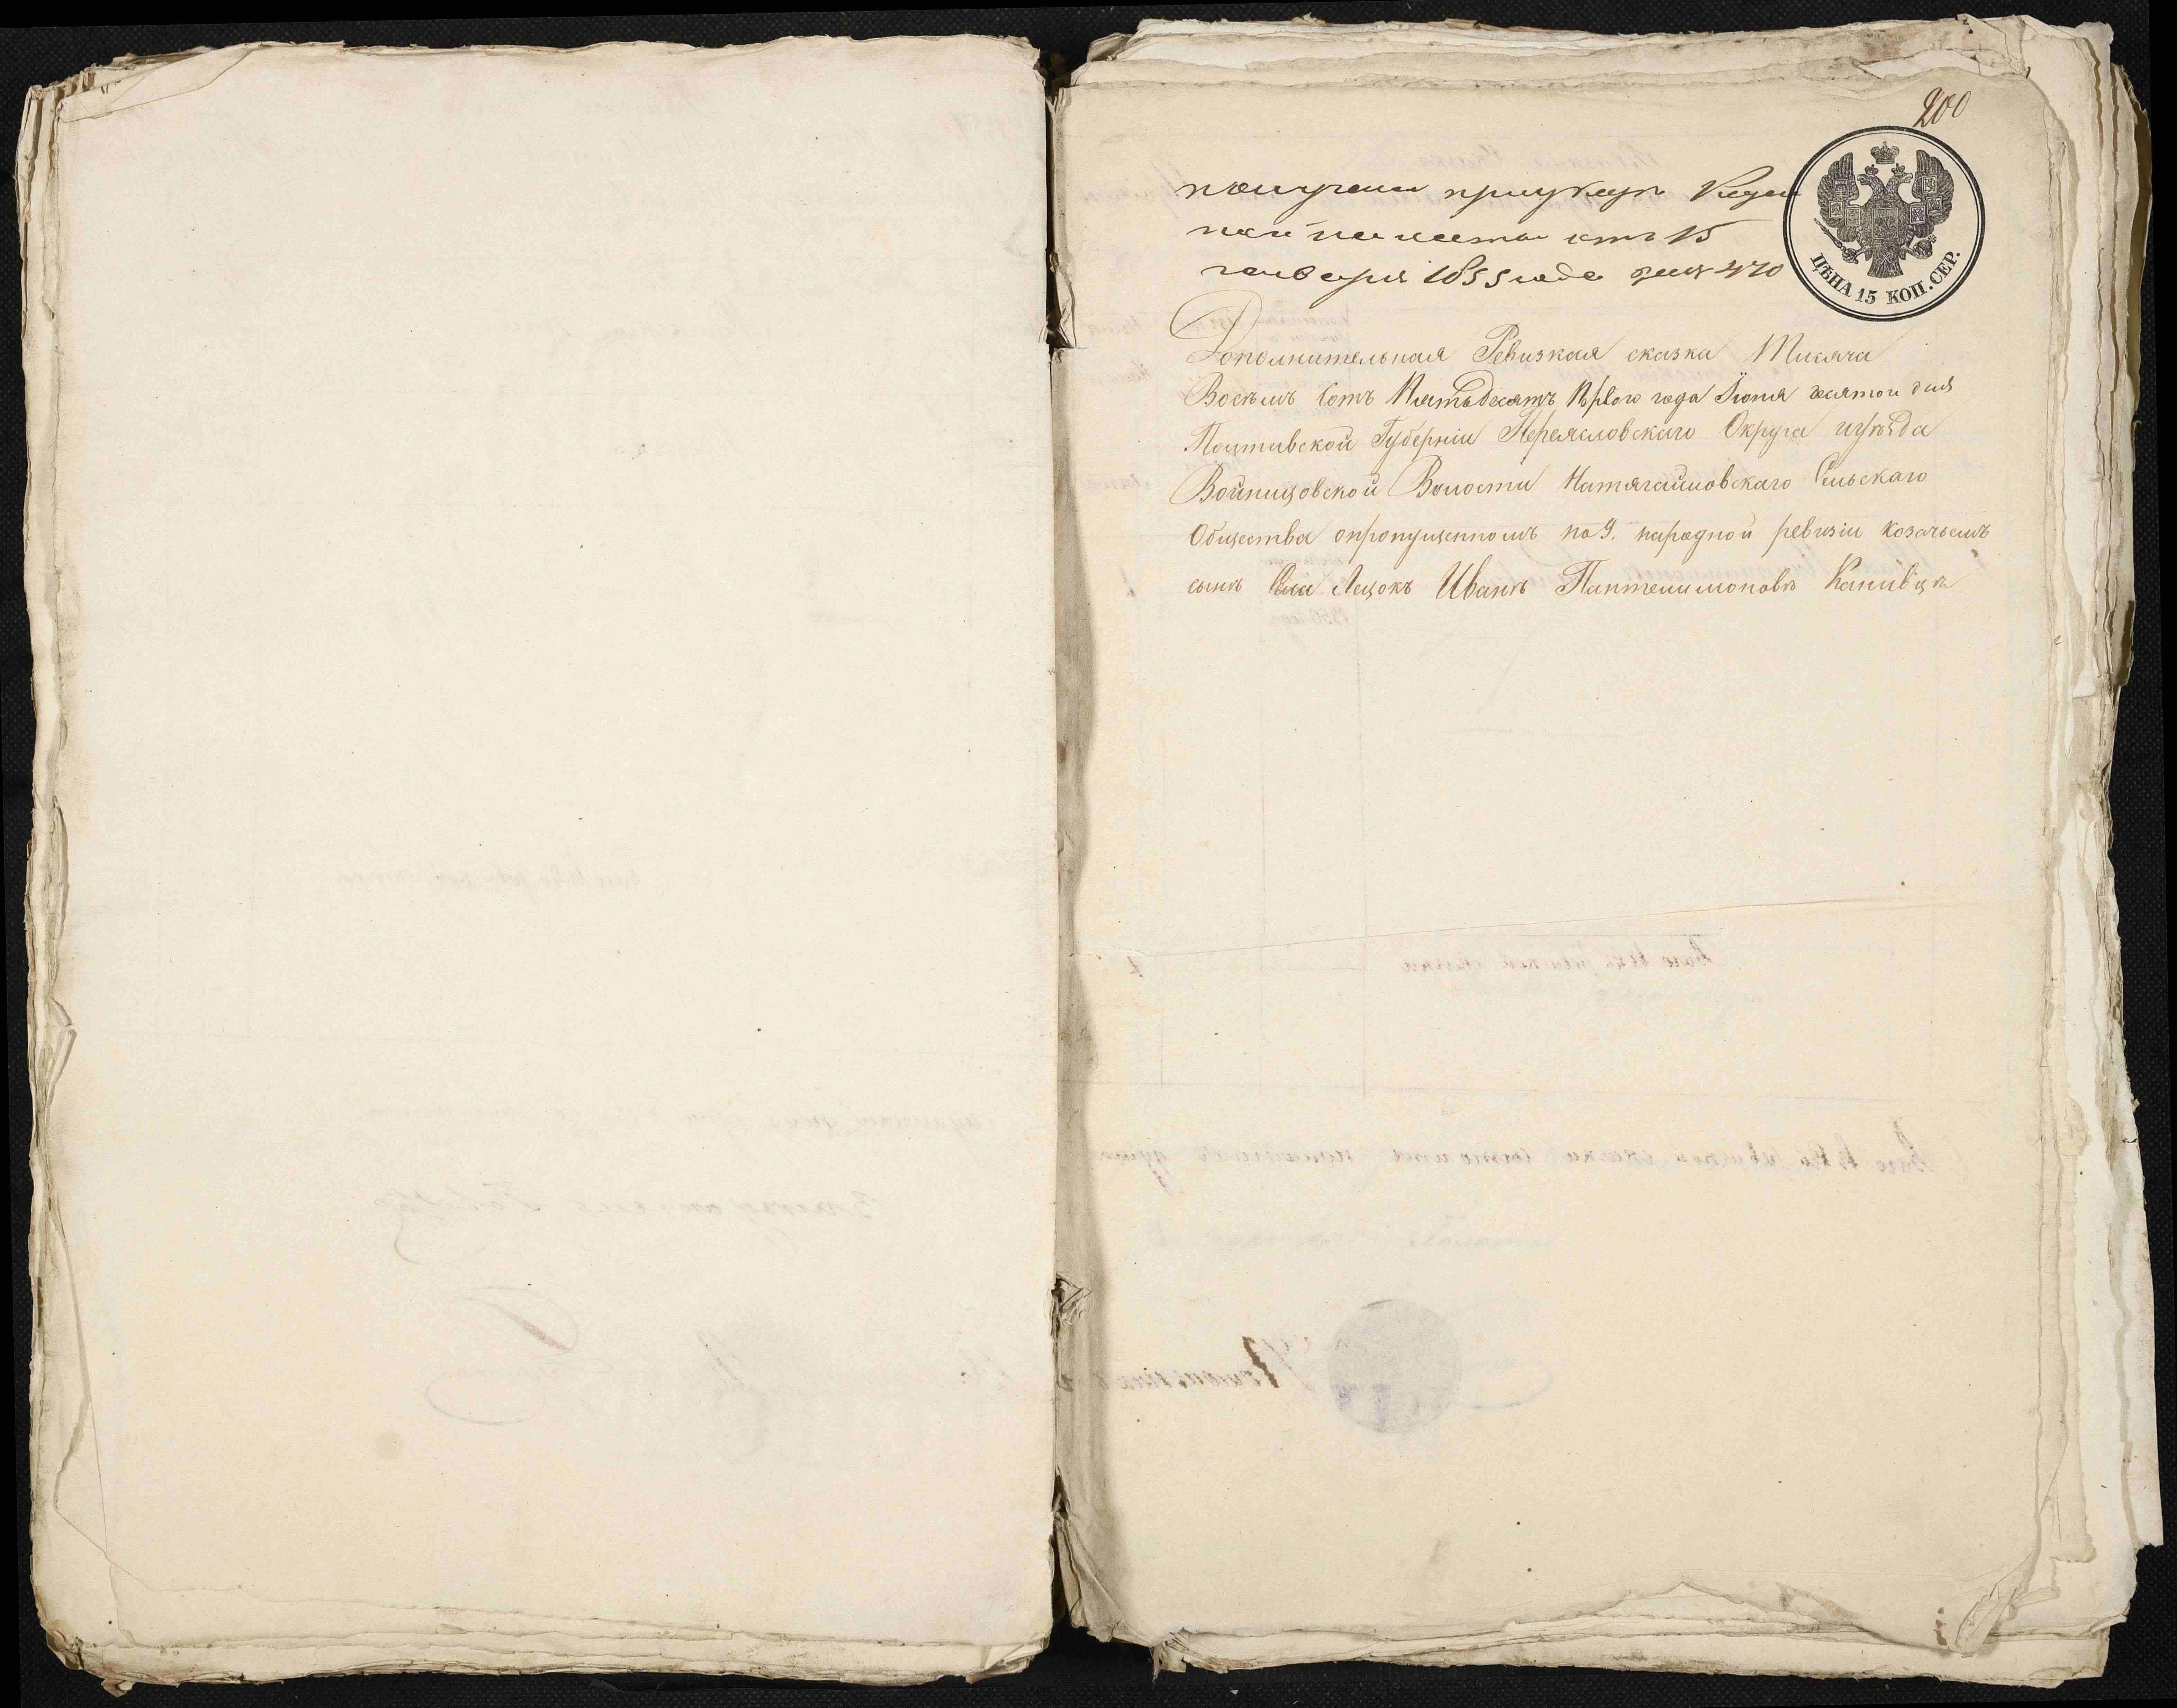 200
ЦѢНА 15 КОП. СЕР.
получена при указе Казен
ной палаты отъ 15
генваря 1855 года за № 470
Дополнительная Ревизкая сказка Тисяча
Восѣмъ Сотъ Пятьдесятъ Първого года Іюня десятой дня
Полтавской Губерніи Переясловскаго Округа иуѣзда
Войницовской Волости Натягайловскаго Сельскаго
Общества опропущенномъ по 9. народной ревизіи козачьемъ
сынѣ Иванѣ Пантелимоновѣ Канивцѣ